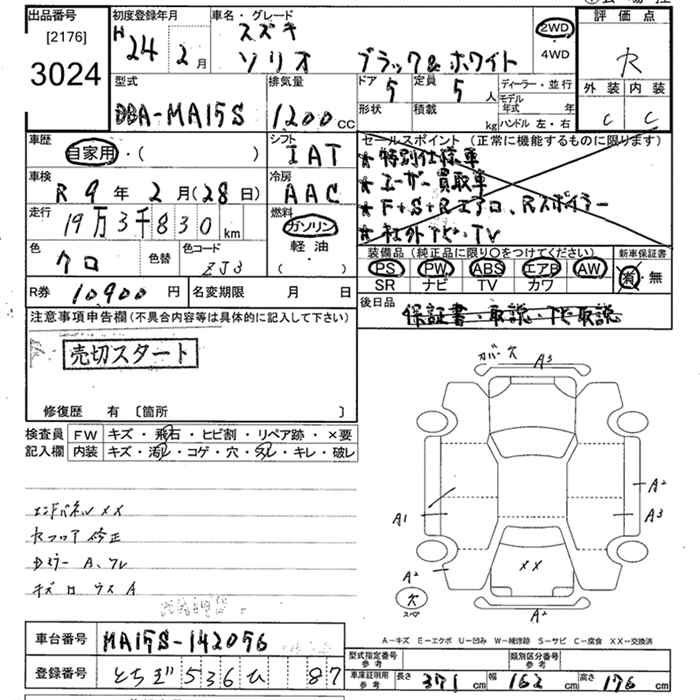 出品番号 初度登録年月 車名・グレード
[2176] H 24年 2月 スズキ 2WD 評価点
3024 ソリオ ブラック&ホワイト 4WD R
型式 排気量 ドア 定員 ディーラー・並行 外装 内装
DBA-MA15S 1200cc 5 5人 モデル年式 年 C C
形状 積載 kg ハンドル 左・右
車歴 シフト セールスポイント(正常に機能するものに限ります)
自家用・( ) IAT ★特別仕様車
車検 冷房 ★ユーザー買取車
R 9年 2月(28日) AAC ★F+S+Rエアロ、Rスポイラー
走行 燃料 ★社外ナビ・TV
19万3千830km ガソリン
色 色替 色コード 軽油 装備品(純正品に限り○をつけてください) 新車保証書
クロ ZJ3 ( ) PS PW ABS エアB AW 有・無
SR ナビ TV カワ
R券 10,900円 名変期限 月 日 後日品
保証書・取説・ナビ取説
注意事項申告欄(不具合内容等は具体的に記入して下さい)
売切スタート
修復歴 有 〔箇所 〕
検査員 FW キズ・飛石・ヒビ割・リペア跡・×要
記入欄 内装 キズ・汚レ・コゲ・穴・スレ・キレ・破レ
カバー欠 A3
エンドパネル XX
セフロア修正
Dミラー A、ワレ
キズ
A1 A2 A3
XX
A2 欠 スペア A2
A‐キズ E‐エクボ U‐凹み W‐補修跡 S‐サビ C‐腐食 XX‐交換済
車台番号 MA15S-142056
型式指定番号 参考 類別区分番号 参考
登録番号 とちぎ536ひ 87
車庫証明用 参考 長さ 371cm 幅 162cm 高さ 176cm